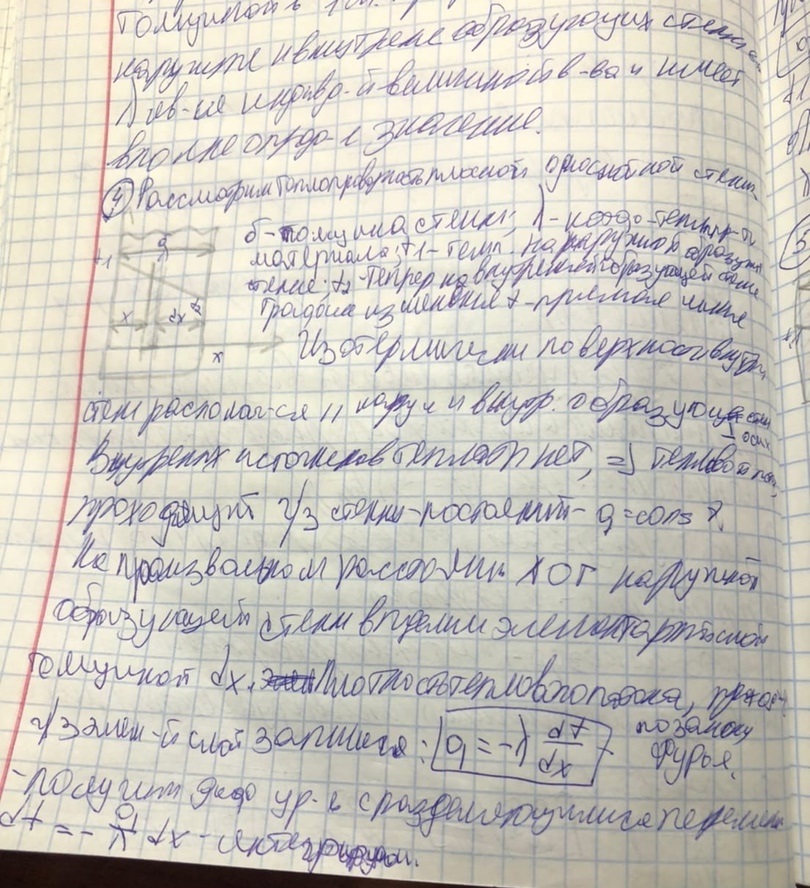 толщиной в 1 м.
наружные и внутрение образующих стенки
λ яв-ся индив-й величиной в-ва и имеет
вполне опред-е значение.
④ Рассмотрим теплопроводность плоской однослойной стенки
δ - толщина стены; λ - коэфо-тепл-ти
t1 δ материала; t1 - темп. на наружной образующ
стене; t2 - темпер на внутренней образующей стене
График изменения t - прямая линия
x dx t2
x Изотермически поверхности внутри
стен располаг-ся || наруж и внутр. образующ стен
Внутрених источников теплоты нет, => тепловой поток,
проходящий ч/з стенки - постоянный - q = const.
На произвольном расстоянии x от наружной
образующей стены выделим элементарный слой
толщиной dx. Плотность теплового потока,
ч/з элем-й слой запишем: q = -λ dt/dx - по закону
Фурье.
- получим диф ур-е с разделяющимися перемен
dt = - q/λ dx - интегрируем.